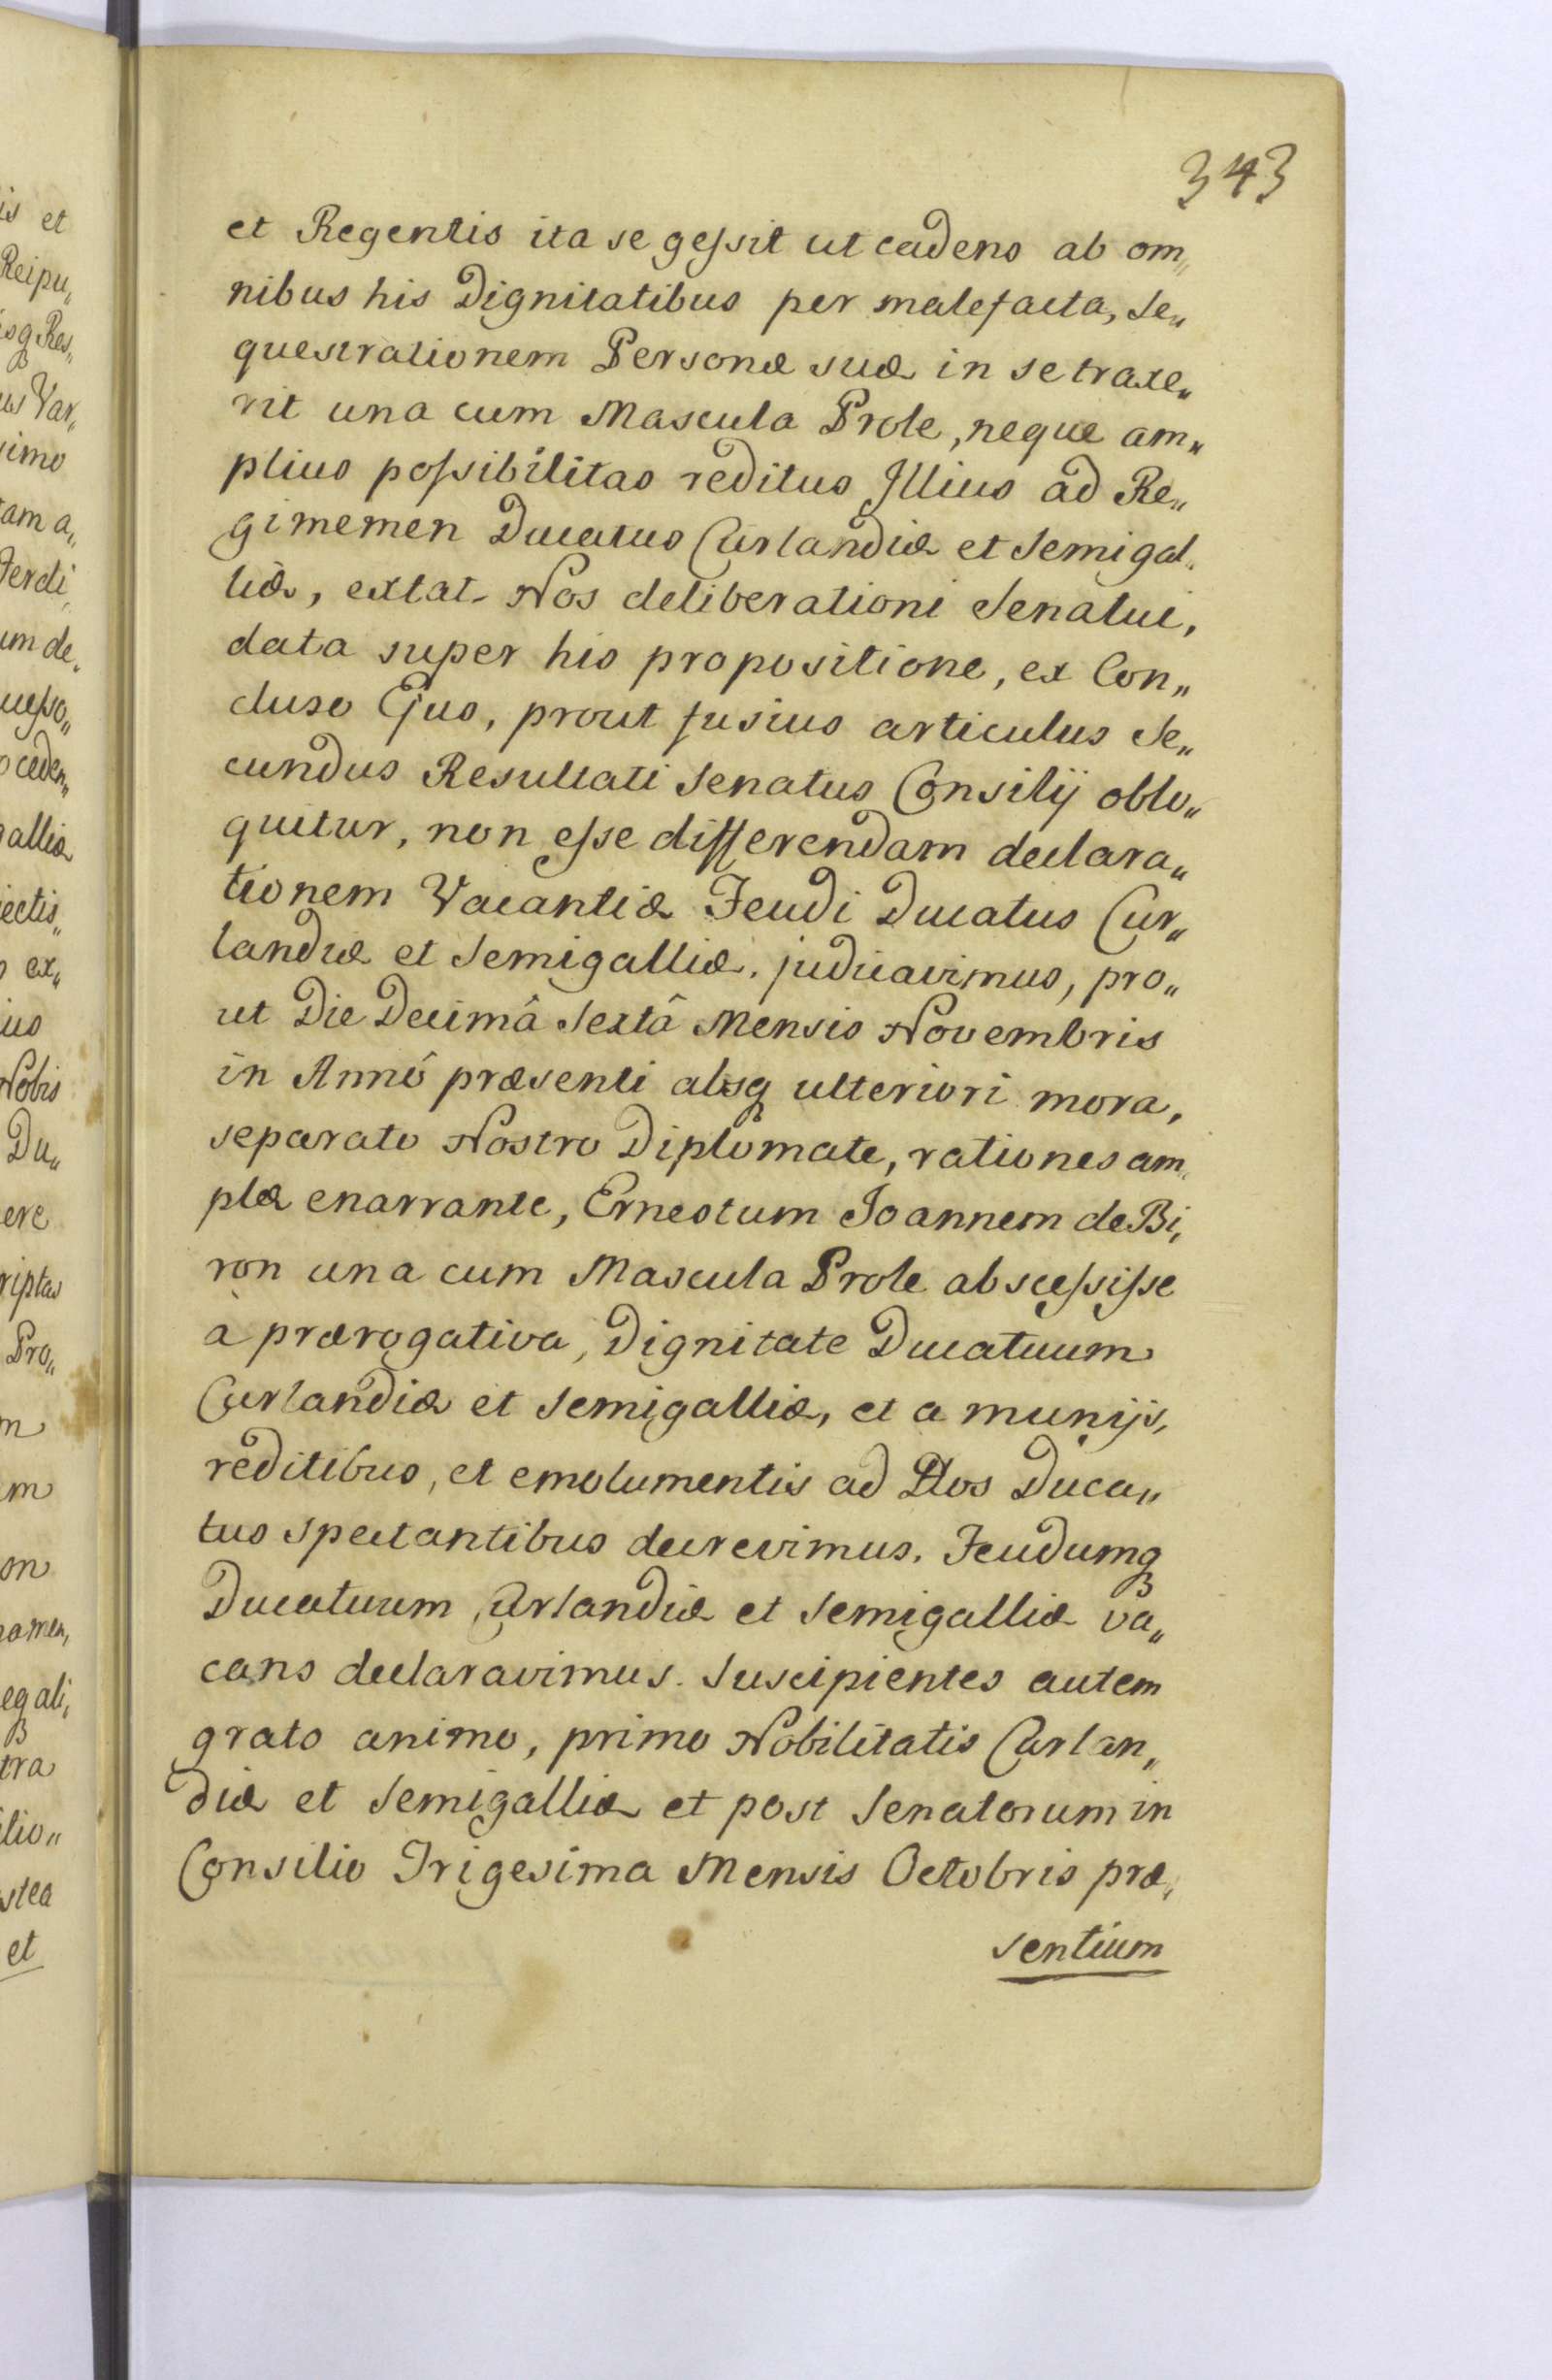 343
et Regentis ita se geſsit ut cadens ab om„
nibus his Dignitatibus per malefacta, Se„
questrationem Personæ suæ in se traxe„
rit una cum Mascula Prole, neque am„
plius poſsibilitas reditus Illius ad Re„
gimemen Ducatus Curlandiæ et Semigal„
liæ, extat. Nos deliberationi Senatui,
data super his propositione, ex Con„
cluso Ejus, prout fusius articulus Se„
cundus Resultati Senatus Consilij oblo„
quitur, non eſse differendam declara„
tionem Vacantiæ Feudi Ducatus Cur„
landiæ et Semigalliæ. judicavimus, pro„
ut Die Decimâ Sextâ Mensis Novembris
in Annô præsenti absq ulteriori mora,
separato Nostro Diplomate, rationes am„
plæ enarrante, Ernestum Joannem de Bi„
ron una cum Mascula Prole absceſsiſse
à prærogativa, Dignitate Ducatuum
Curlandiæ et Semigalliæ, et a munijs,
reditibus, et emolumentis ad Hos Duca„
tus spectantibus decrevimus. Feudumq
Ducatuum Curlandiæ et Semigalliæ va„
cans declaravimus. Suscipientes autem
grato animo, primo Nobilitatis Curlan„
diæ et Semigalliæ et post Senatorum in
Consilio Trigesima Mensis Octobris præ„
sentium
is et
Reipu„
isq Res„
us Var„
simo
tam a„
Ferdi„
um de„
ucſso„
ceden„
galliæ
iectis„
ex„
ius
Nobis
Du„
ere
riptas
Pro„
m
m
on
namen„
egali„
tra
ilio„
stea
et